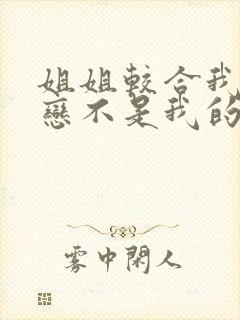 姐姐較合我
戀不是我的
雾中閑人